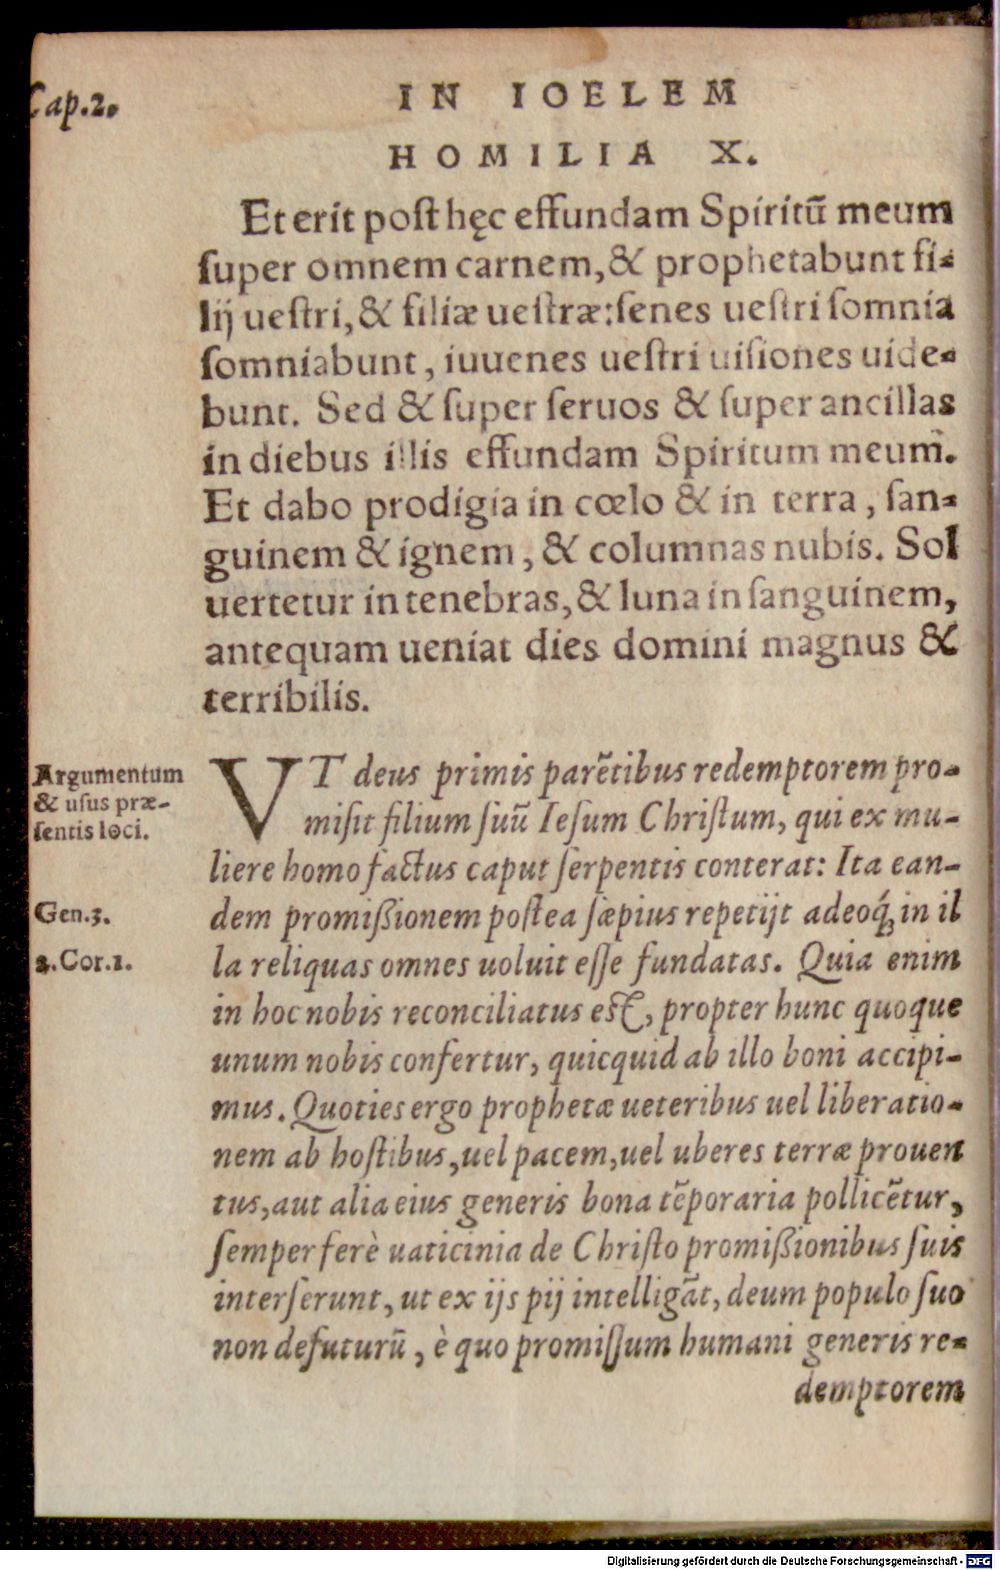 Cap.2.
IN IOELEM
HOMILIA X.
Et erit post hęc effundam Spiritū meum
super omnem carnem, & prophetabunt fi-
lij uestri, & filiæ uestræ: senes uestri somnia
somniabunt, iuuenes uestri uisiones uide-
bunt. Sed & super seruos & super ancillas
in diebus illis effundam Spiritum meum.
Et dabo prodigia in cœlo & in terra, san-
guinem & ignem, & columnas nubis. Sol
uertetur in tenebras, & luna in sanguinem,
antequam ueniat dies domini magnus &
terribilis.
Argumentum
& usus præ-
sentis loci.
VT deus primis parētibus redemptorem pro-
misit filium suū Iesum Christum, qui ex mu-
liere homo factus caput serpentis conterat: Ita ean-
Gen.3.
dem promißionem postea sæpius repetijt adeoq́; in il
2.Cor.1.
la reliquas omnes uoluit esse fundatas. Quia enim
in hoc nobis reconciliatus est, propter hunc quoque
unum nobis confertur, quicquid ab illo boni accipi-
mus. Quoties ergo prophetæ ueteribus uel liberatio-
nem ab hostibus, uel pacem, uel uberes terræ prouen
tus, aut alia eius generis bona tēporaria pollicētur,
semper ferè uaticinia de Christo promißionibus suis
interserunt, ut ex ijs pij intelligāt, deum populo suo
non defuturū, è quo promissum humani generis re-
demptorem
Digitalisierung gefördert durch die Deutsche Forschungsgemeinschaft - DFG